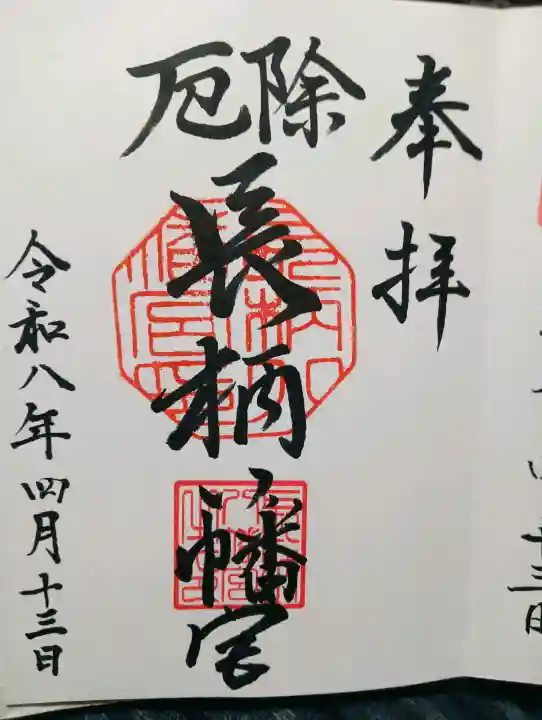 奉拝
厄除
長柄八幡宮
令和八年四月十三日
十三日